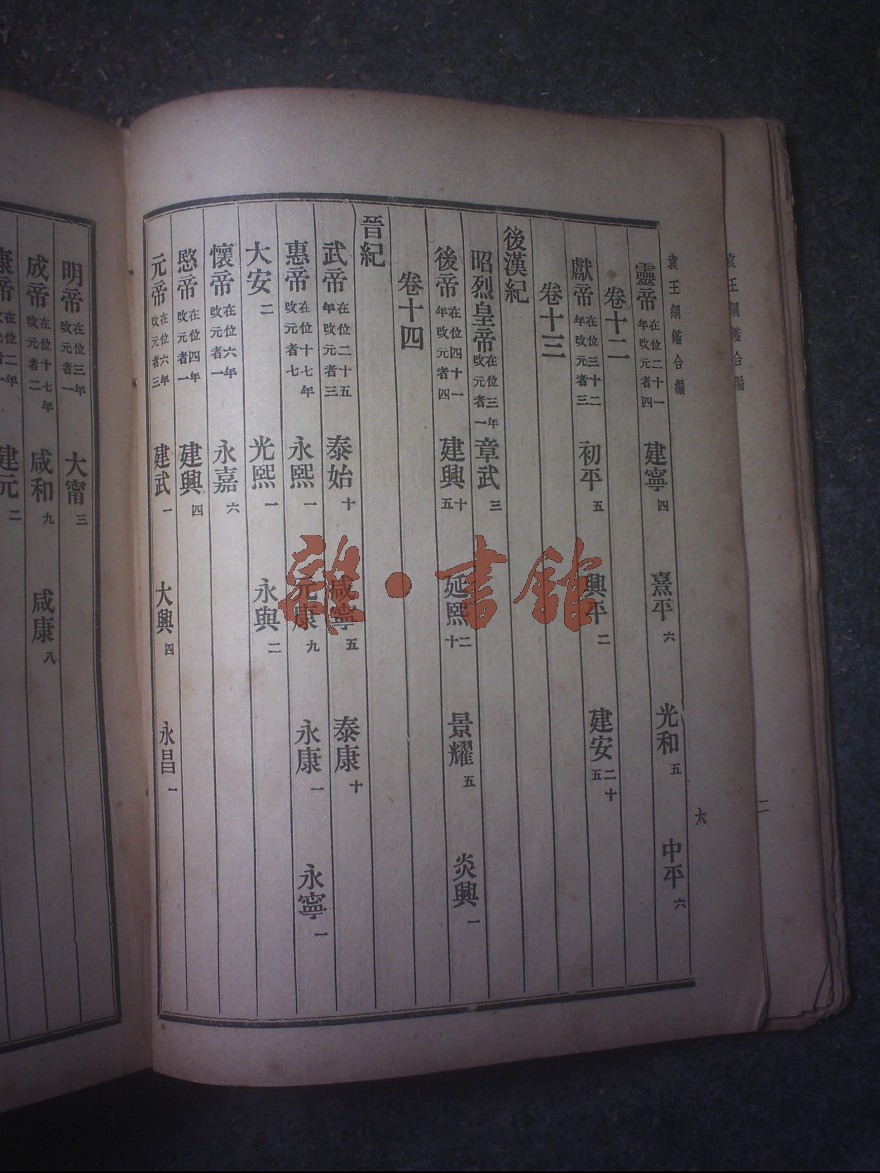 袁王綱鑑合編
六
靈帝 在位二十一年改元者四 建寧四 熹平六 光和五 中平六
卷十二
獻帝 在位三十二年改元者三 初平五 興平二 建安二十五
卷十三
後漢紀
昭烈皇帝 在位三年改元者一 章武三
後帝 在位四十一年改元者四 建興十五 延熙二十 景耀五 炎興一
卷十四
晉紀
武帝 在位二十五年改元者三 泰始十 咸寧五 泰康十
惠帝 在位十七年改元者七 永熙一 元康九 永康一 永寧一
大安二 光熙一 永興二
懷帝 在位六年改元者一 永嘉六
愍帝 在位四年改元者一 建興四
元帝 在位六年改元者三 建武一 大興四 永昌一
明帝 在位三年改元者一 大甯三
成帝 在位十七年改元者二 咸和九 咸康八
康帝 在位二年改元者一 建元二
袁王綱鑑合編
二
雜·書館